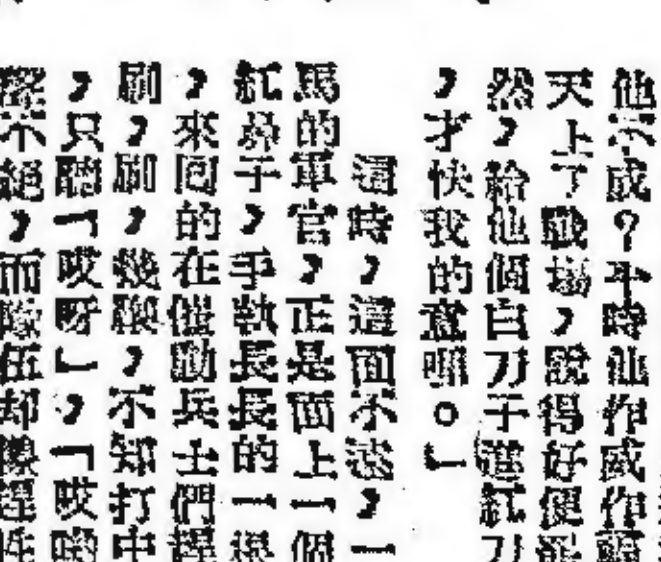 他不成？平時他作威作
天上了戰場，說得好便
然，給他個白刀子進紅刀
，才快我的意哪。」
這時，這面不遠，一
馬的軍官，正是面上一個
紅鼻子，手執長長的一
，來回的在催勸兵士們趕
刷，刷，刷，幾鞭，不知打中
，只聽「哎呀」，「哎喲
不絕，而隊伍却像趕